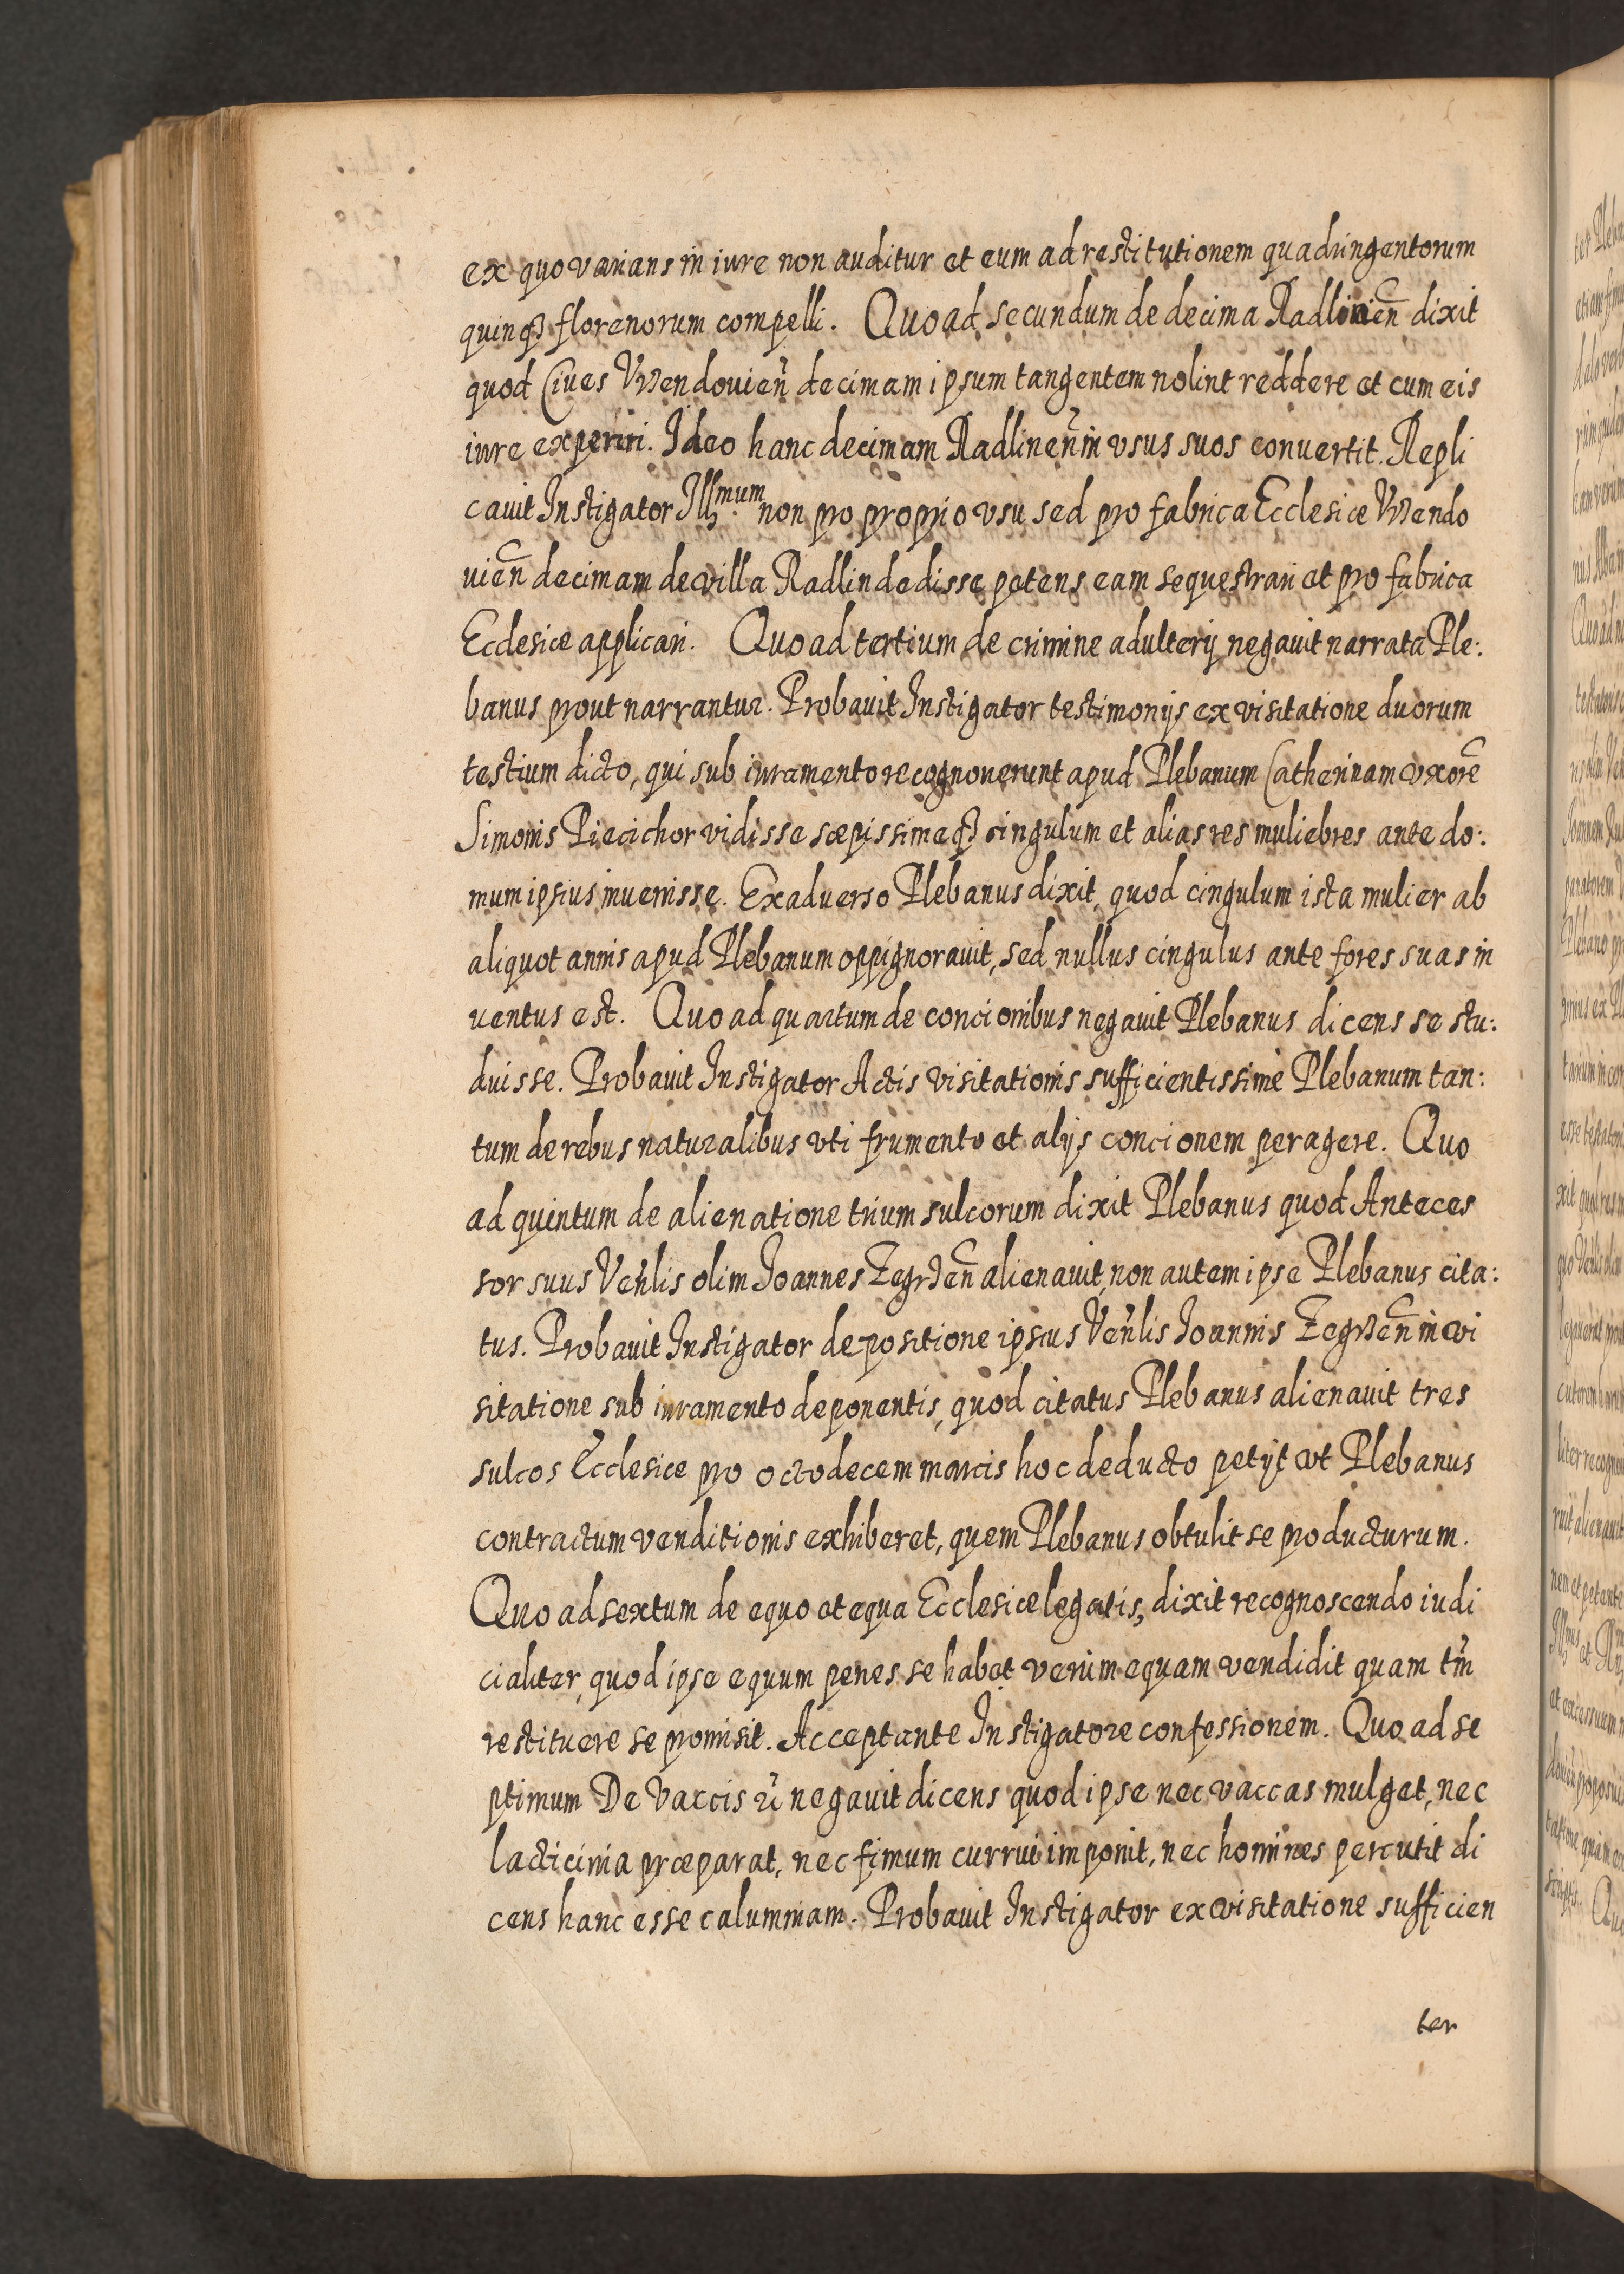 ex quo varians in iure non auditur et eum ad restitutionem quadringentorum
quinq₃ florenorum compelli. Quo ad secundum de decima Radlinień dixit
quod Ciues Wendouień decimam ipsum tangentem nolint reddere et cum eis
iure experiri. Ideo hanc decimam Radlineń in vsus suos conuertit. Repli
cauit Instigator Illmum non pro proprio vsu sed pro fabrica Ecclesiæ Wendo
uień decimam de villa Radlin dedisse petens eam sequestrari et pro fabrica
Ecclesiæ applicari. Quo ad tertium de crimine adulterij negauit narrata Ple:
banus prout narrantur. Probauit Instigator testimonijs ex visitatione duorum
testium dicto, qui sub iuramento recognouerunt apud Plebanum Catherinam vxorē
Simonis Piecichor vidisse sæpissimeq₃ cingulum et alias res muliebres ante do:
mum ipsius inuenisse. Ex aduerso Plebanus dixit, quod cingulum ista mulier ab
aliquot annis apud Plebanum oppignorauit, sed nullus cingulus ante fores suas in
uentus est. Quo ad quartum de concionibus negauit Plebanus dicens se stu:
duisse. Probauit Instigator Actis visitationis sufficientissimè Plebanum tan:
tum de rebus naturalibus vti frumento et alijs concionem peragere. Quo
ad quintum de alienatione trium sulcorum dixit Plebanus quod Anteces
sor suus Veńlis olim Joannes alienauit, non autem ipse Plebanus cita:
tus. Probauit Instigator depositione ipsius Veńlis Joannis in vi
sitatione sub iuramento deponentis, quod citatus Plebanus alienauit tres
sulcos Ecclesiæ pro octodecem marcis hoc deducto petijt vt Plebanus
contractum venditionis exhiberet, quem Plebanus obtulit se producturum.
Quo ad sextum de equo et equa Ecclesiæ legatis, dixit recognoscendo iudi
cialiter, quod ipse equum penes se habet verùm equam vendidit quam tm̃
restituere se promisit. Acceptante Instigatore confessionem. Quo ad se
ptimum De Vaccis negauit dicens quod ipse nec vaccas mulget, nec
lacticinia præparat, nec fimum currui imponit, nec homines percutit di
cens hanc esse calumniam. Probauit Instigator ex visitatione sufficien
ter